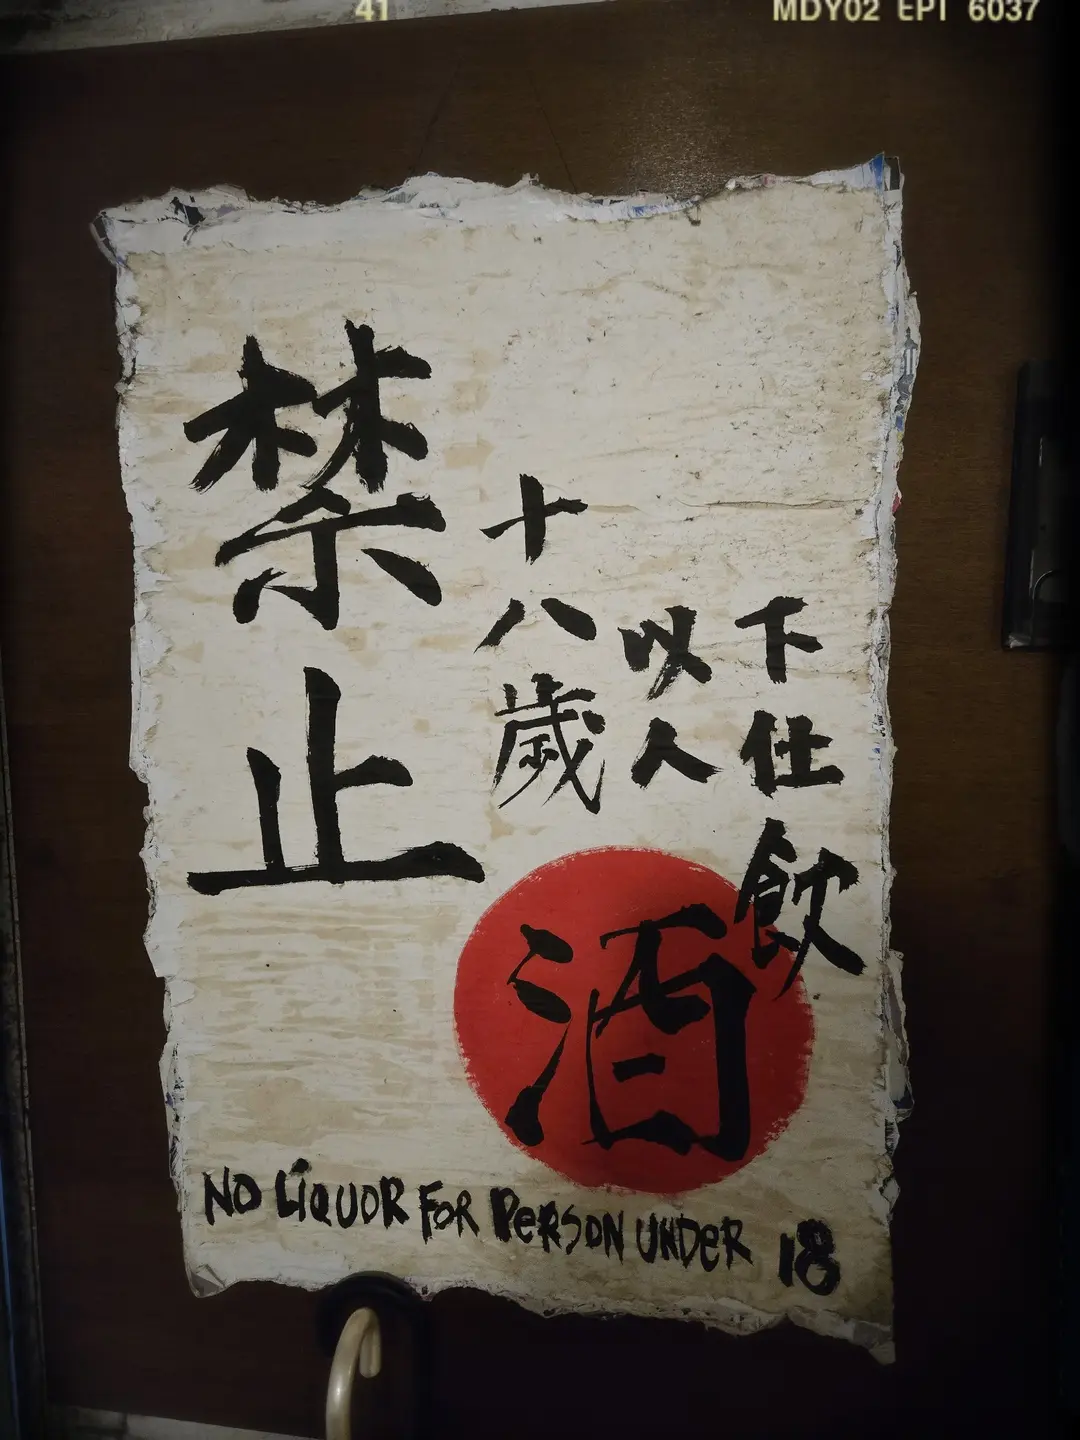 41
MDY02 EPT 6037
禁止
十八歲
以下
人仕
飲
酒
NO LIQUOR FOR PERSON UNDER 18